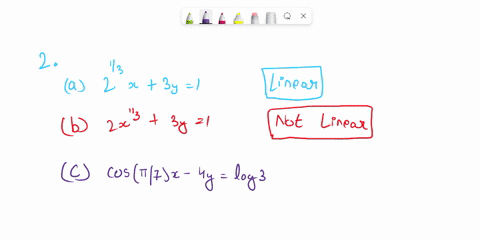 2.
(a) 2^{1/3} x + 3y = 1 Linear
(b) 2x^{1/3} + 3y = 1 Not Linear
(c) cos(π/7)x - 4y = log 3